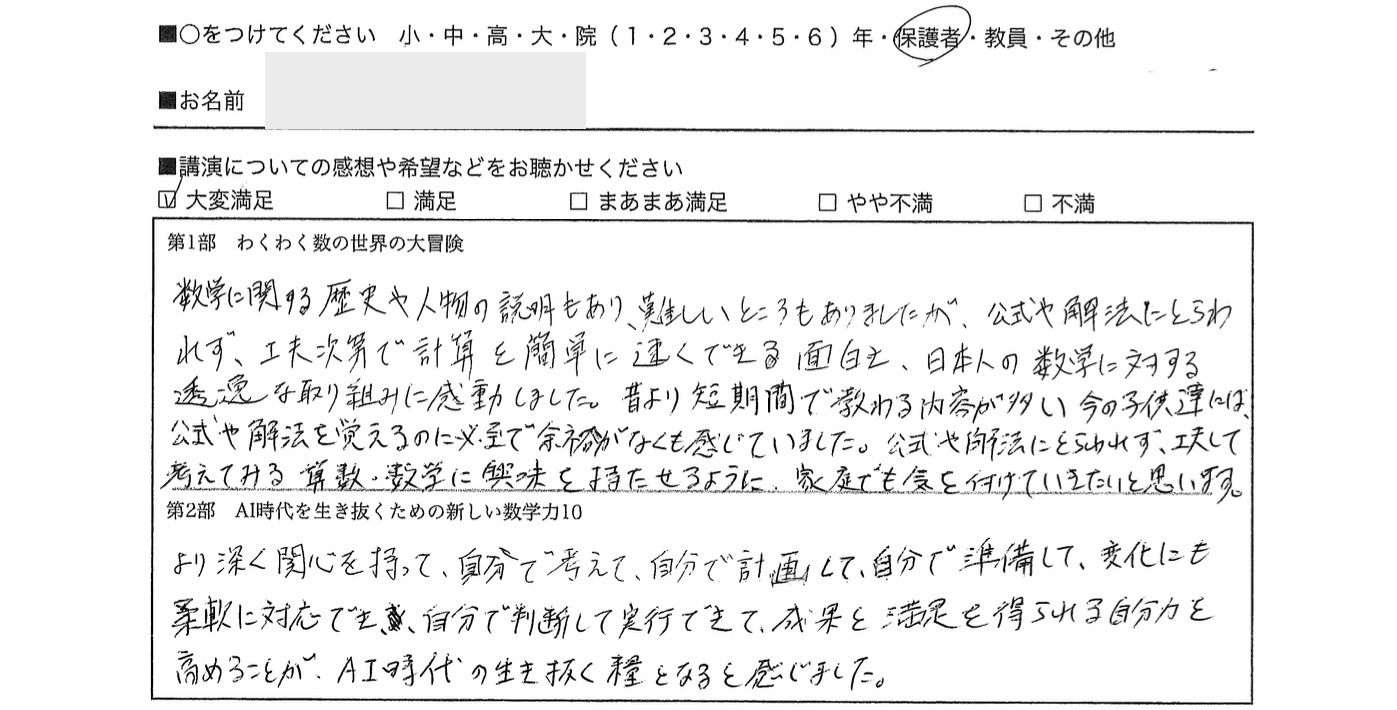 ■○をつけてください 小・中・高・大・院（1・2・3・4・5・6）年・保護者・教員・その他
■お名前
■講演についての感想や希望などをお聴かせください
☑ 大変満足 □ 満足 □ まあまあ満足 □ やや不満 □ 不満
第1部 わくわく数の世界の大冒険
数学に関する歴史や人物の説明もあり、難しいところもありましたが、公式や解法にとらわ
れず、工夫次第で計算を簡単に速くできる面白さ、日本人の数学に対する
な取り組みに感動しました。昔より短期間で教わる内容が多い今の子供達には、
公式や解法を覚えるのに必至で余裕がなくも感じていました。公式や解法にとらわれず、工夫して
考えてみる算数・数学に興味を持たせるように、家庭でも気を付けていきたいと思います。
第2部 AI時代を生き抜くための新しい数学力10
より深く関心を持って、自分で考えて、自分で計画して、自分で準備して、変化にも
柔軟に対応でき、自分で判断して実行できて、成果と満足を得られる自分力を
高めることが、AI時代の生き抜く糧となると感じました。